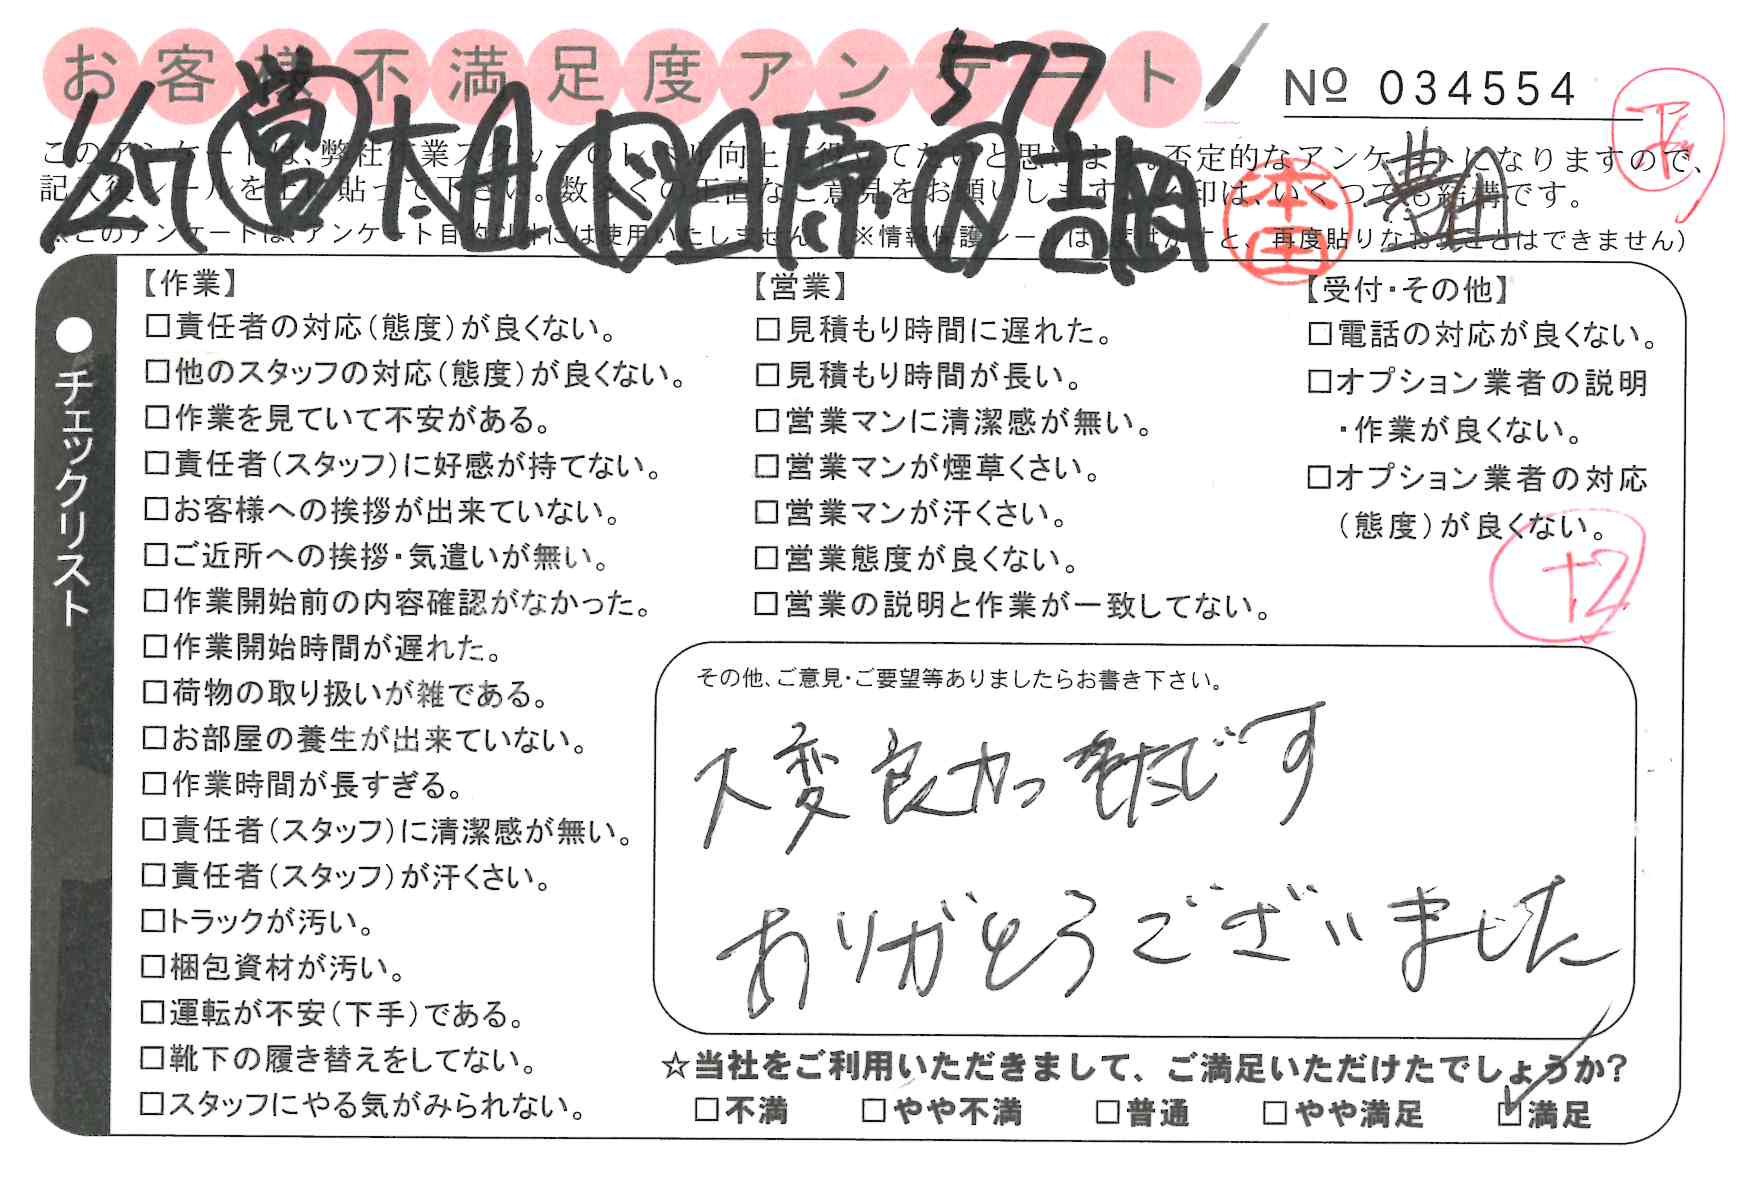 お客様不満足度アンケート
577
No 034554
1/27 営 本田 ド 田原 ア 諏
このアンケートは、弊社作業スタッフのレベル向上に役立てたいと思います。否定的なアンケートになりますので、
記入後シールを上に貼って下さい。数多くの正直なご意見をお願いします。レ印は、いくつでも結構です。
※このアンケートは、アンケート目的以外には使用いたしません。(※情報保護シールは一度はがすと、再度貼りなおすことはできません)
本田
●チェックリスト
【作業】
□責任者の対応(態度)が良くない。
□他のスタッフの対応(態度)が良くない。
□作業を見ていて不安がある。
□責任者(スタッフ)に好感が持てない。
□お客様への挨拶が出来ていない。
□ご近所への挨拶・気遣いが無い。
□作業開始前の内容確認がなかった。
□作業開始時間が遅れた。
□荷物の取り扱いが雑である。
□お部屋の養生が出来ていない。
□作業時間が長すぎる。
□責任者(スタッフ)に清潔感が無い。
□責任者(スタッフ)が汗くさい。
□トラックが汚い。
□梱包資材が汚い。
□運転が不安(下手)である。
□靴下の履き替えをしてない。
□スタッフにやる気がみられない。
【営業】
□見積もり時間に遅れた。
□見積もり時間が長い。
□営業マンに清潔感が無い。
□営業マンが煙草くさい。
□営業マンが汗くさい。
□営業態度が良くない。
□営業の説明と作業が一致してない。
【受付・その他】
□電話の対応が良くない。
□オプション業者の説明
・作業が良くない。
□オプション業者の対応
(態度)が良くない。
+2
その他、ご意見・ご要望等ありましたらお書き下さい。
大変良かったです
ありがとうございました
☆当社をご利用いただきまして、ご満足いただけたでしょうか?
□不満 □やや不満 □普通 □やや満足 ☑満足